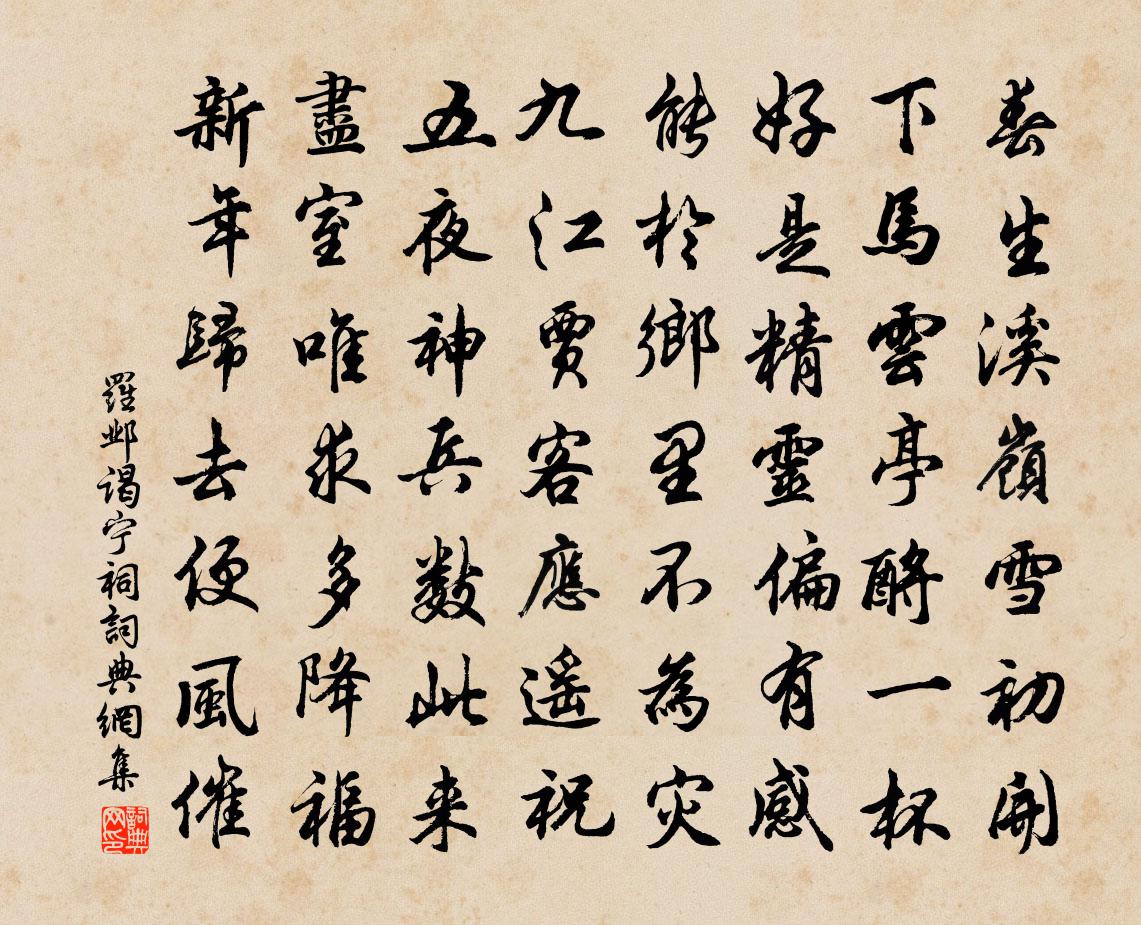 春生溪嶺雪初開
下馬雲亭酹一杯
好是精靈偏有感
能於鄉里不為灾
九江賈客應遥祝
五夜神兵數此来
盡室唯求多降福
新年歸去便風催
羅邺谒宁祠詞典網集
詞典网印